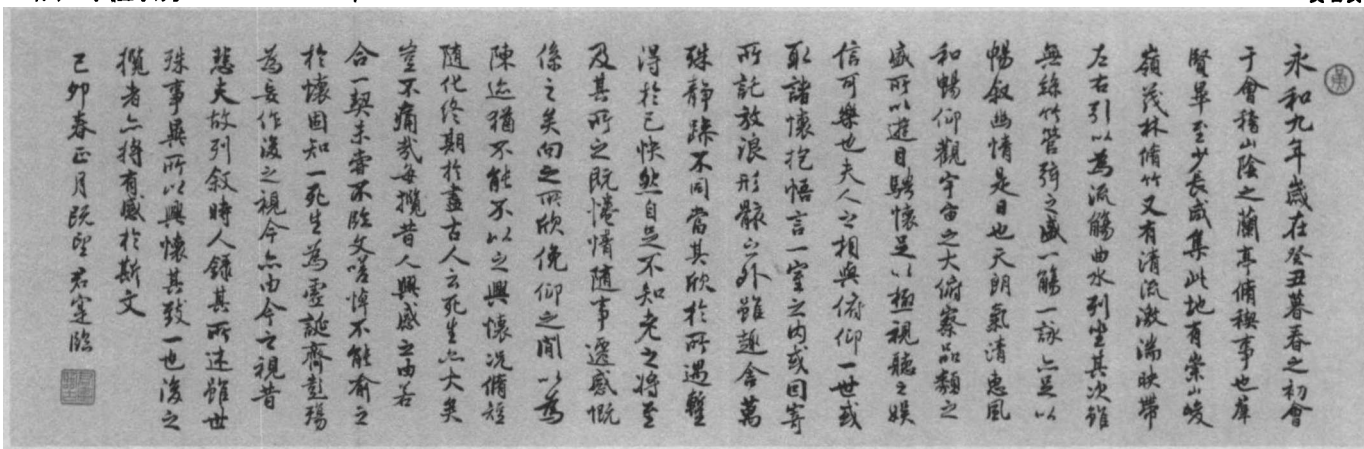 永和九年歲在癸丑暮春之初會
于會稽山陰之蘭亭脩稧事也羣
賢畢至少長咸集此地有崇山峻
嶺茂林脩竹又有清流激湍映帶
左右引以為流觴曲水列坐其次雖
無絲竹管弦之盛一觴一詠亦足以
暢叙幽情是日也天朗氣清惠風
和暢仰觀宇宙之大俯察品類之
盛所以遊目騁懷足以極視聽之娛
信可樂也夫人之相與俯仰一世或
取諸懷抱悟言一室之內或因寄
所託放浪形骸之外雖趣舍萬
殊靜躁不同當其欣於所遇暫
得於己快然自足不知老之將至
及其所之既惓情隨事遷感慨
係之矣向之所欣俛仰之間以為
陳迹猶不能不以之興懷況脩短
隨化終期於盡古人云死生亦大矣
豈不痛哉每攬昔人興感之由若
合一契未嘗不臨文嗟悼不能喻之
於懷固知一死生為虛誕齊彭殤
為妄作後之視今亦由今之視昔
悲夫故列叙時人錄其所述雖世
殊事異所以興懷其致一也後之
攬者亦將有感於斯文
己卯春正月既望君寔臨